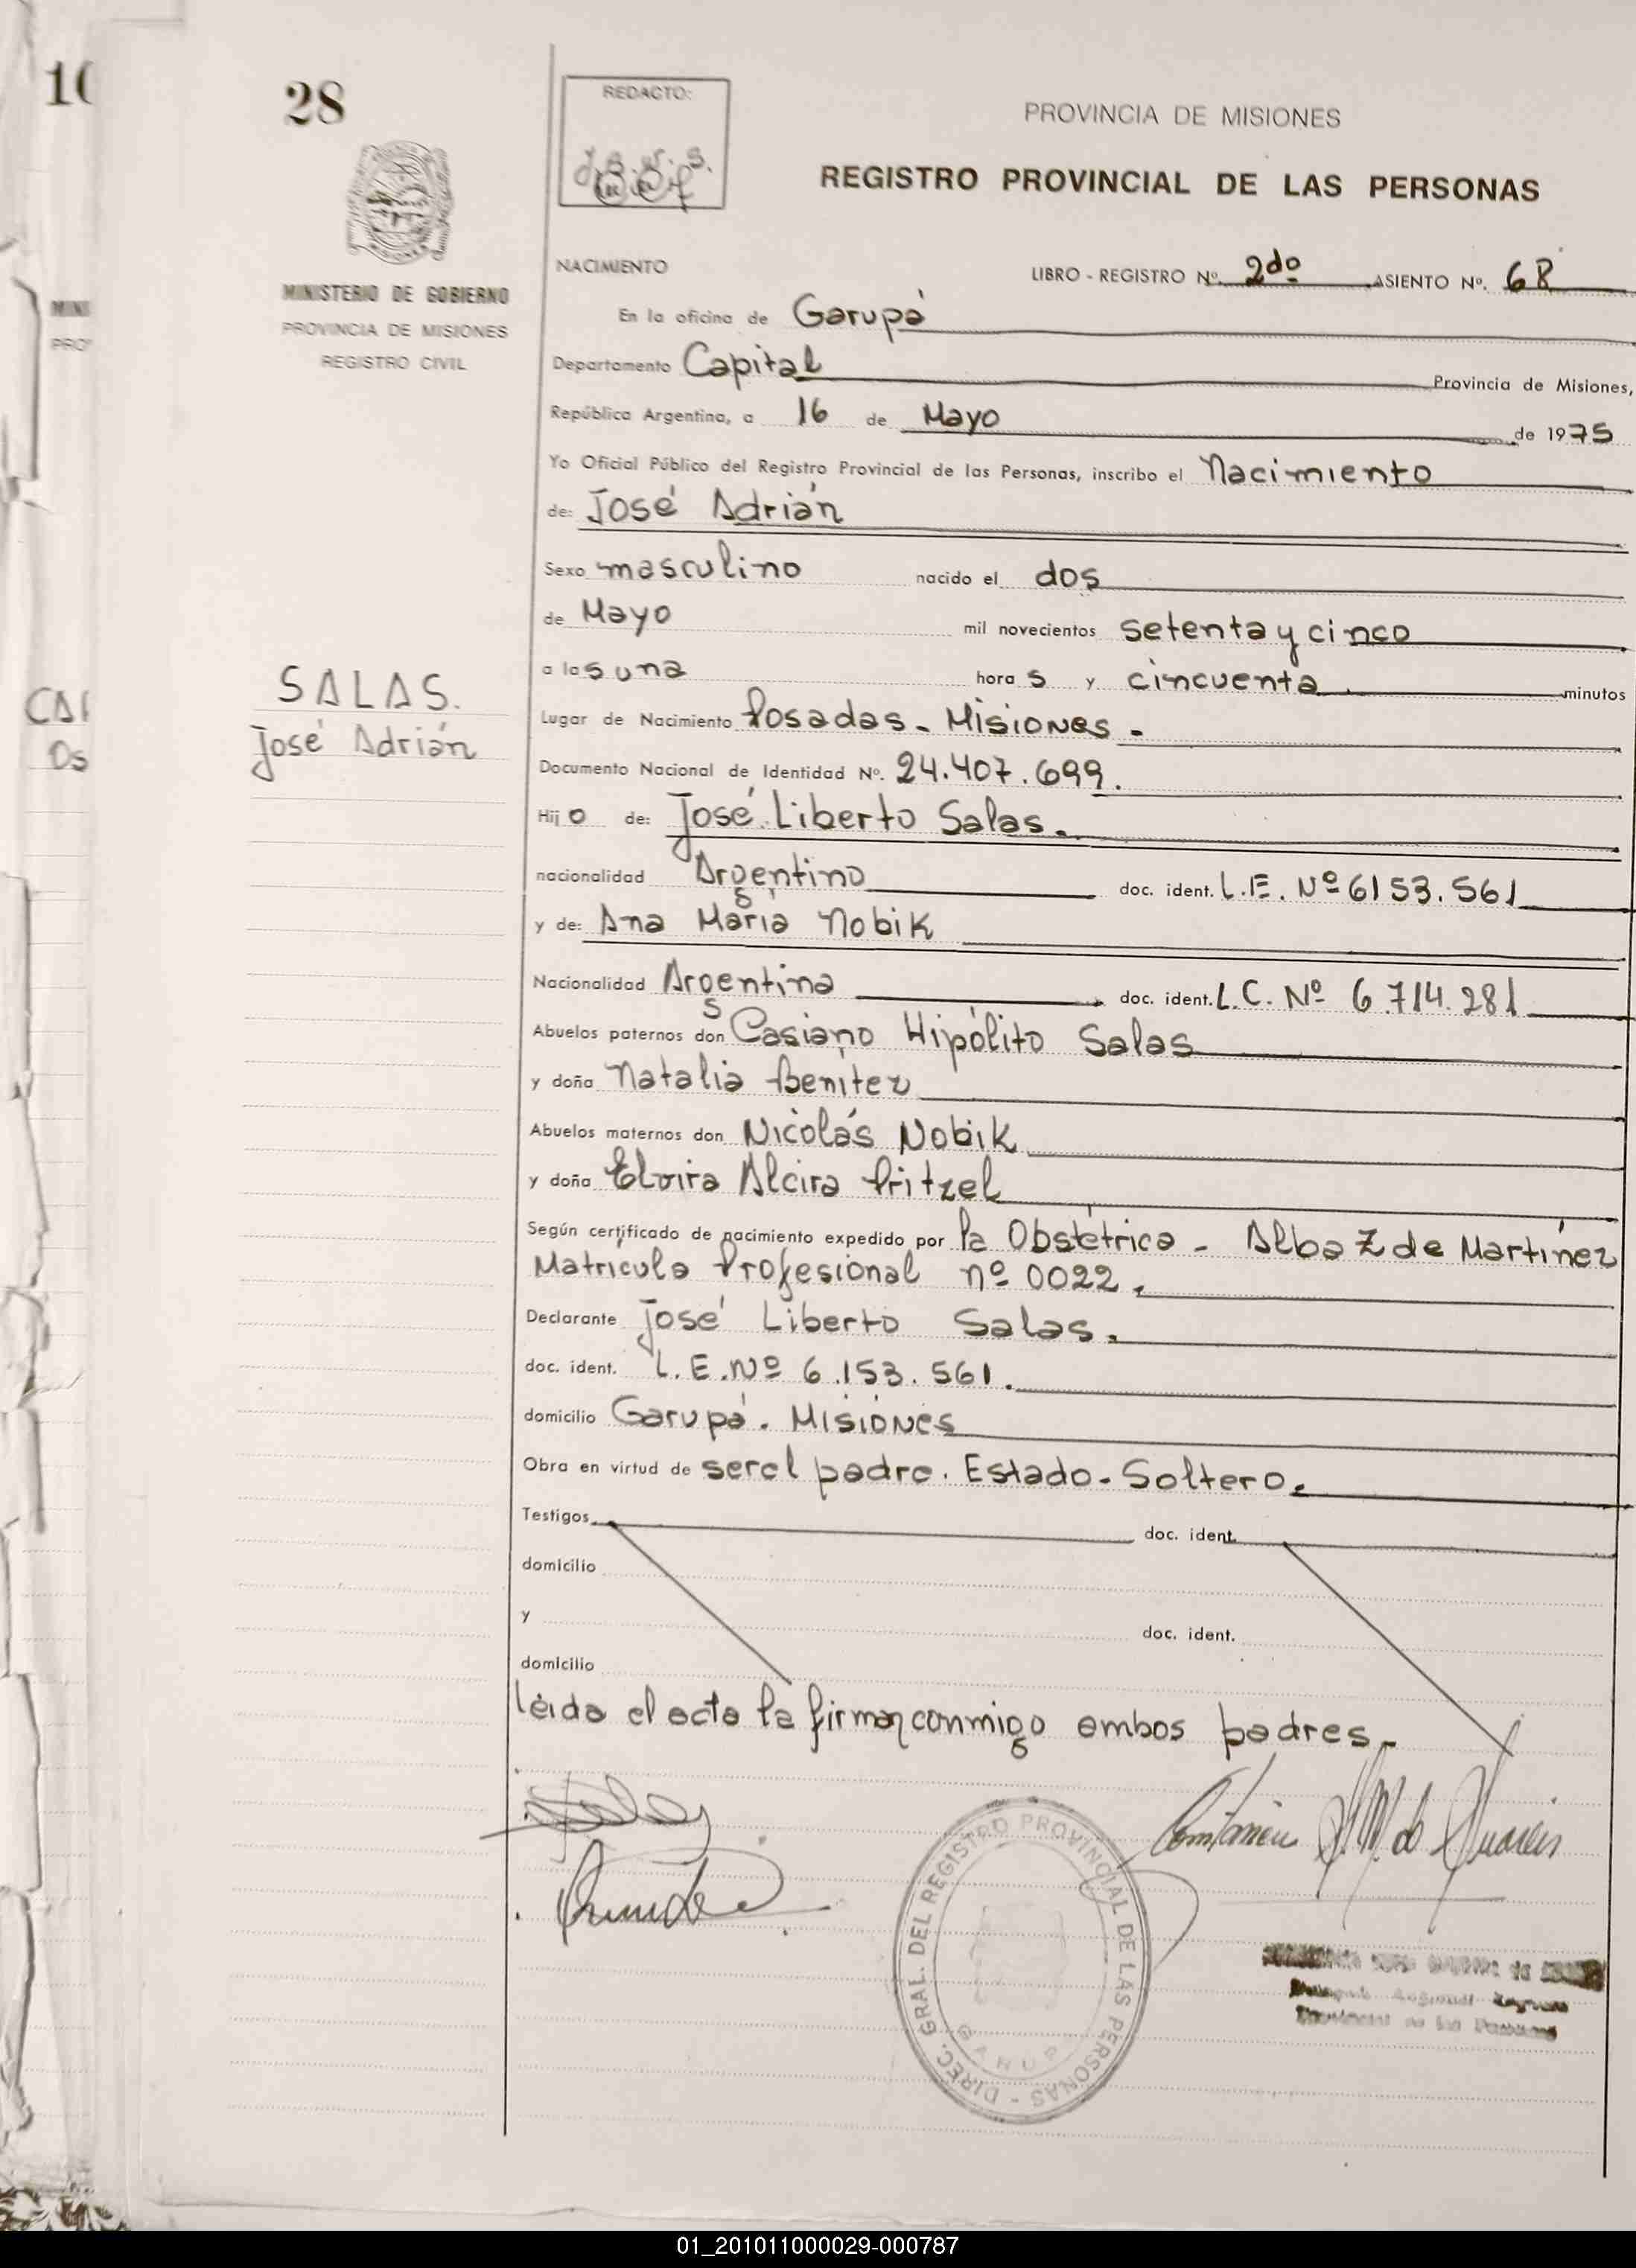 10
28
REDACTO:
PROVINCIA DE MISIONES
REGISTRO PROVINCIAL DE LAS PERSONAS
MINISTERIO DE GOBIERNO
PROVINCIA DE MISIONES
REGISTRO CIVIL
NACIMIENTO LIBRO - REGISTRO Nº. 2do ASIENTO Nº. 68
En la oficina de Garupá
Departamento Capital Provincia de Misiones,
República Argentina, a 16 de Mayo de 1975
Yo Oficial Público del Registro Provincial de las Personas, inscribo el Nacimiento
de: José Adrián
Sexo masculino nacido el dos
de Mayo mil novecientos setenta y cinco
a las una horas y cincuenta minutos
SALAS.
José Adrián
Lugar de Nacimiento Posadas - Misiones -
Documento Nacional de Identidad Nº. 24.407.699.
Hijo de: José Liberto Salas.
nacionalidad Argentino doc. ident. L.E. Nº 6153.561
y de: Ana María Nobik
Nacionalidad Argentina doc. ident. L.C. Nº 6.714.281
Abuelos paternos don Casiano Hipólito Salas
y doña Natalia Benitez
Abuelos maternos don Nicolás Nobik
y doña Elvira Alcira Pritzel
Según certificado de nacimiento expedido por la Obstétrica - Alba Z de Martínez
Matrícula Profesional nº 0022.
Declarante José Liberto Salas.
doc. ident. L.E. Nº 6.153.561.
domicilio Garupá. Misiones
Obra en virtud de ser el padre. Estado - Soltero.
Testigos doc. ident.
domicilio
y doc. ident.
domicilio
leída el acta la firman conmigo ambos padres.
DIREC. GRAL. DEL REGISTRO PROVINCIAL DE LAS PERSONAS -
01_201011000029-000787